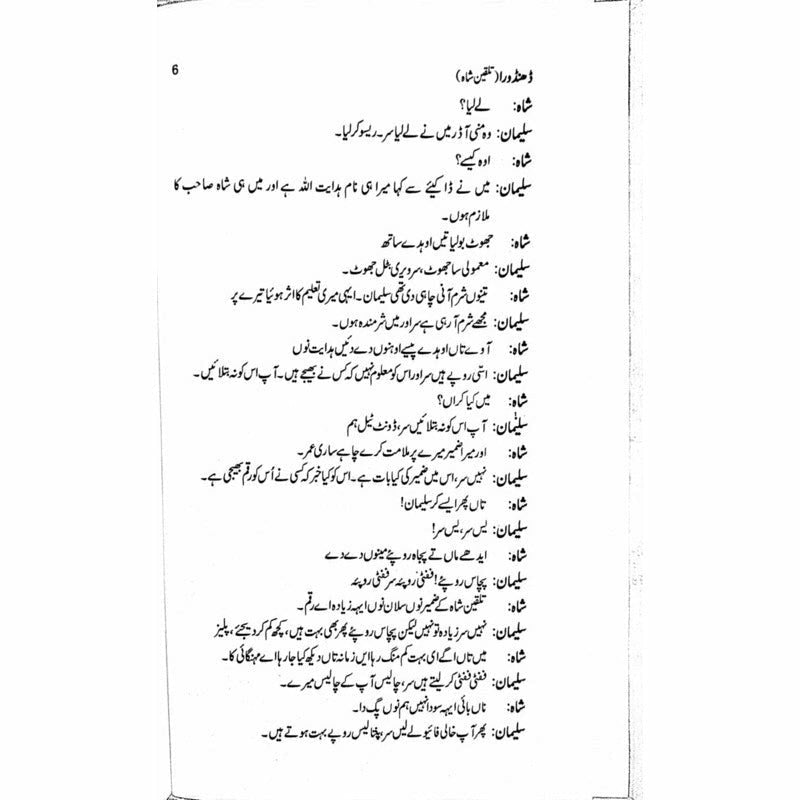 ڈھنڈورا (تلقین شاہ)
6
شاہ: لے لیا؟
سلیمان: وہ منی آڈر میں نے لے لیا سر۔ ریسو کر لیا۔
شاہ: اوہ کیسے؟
سلیمان: میں نے ڈاکیئے سے کہا میرا ہی نام ہدایت اللہ ہے اور میں ہی شاہ صاحب کا
ملازم ہوں۔
شاہ: جھوٹ بولیا تیں اوہدے ساتھ
سلیمان: معمولی سا جھوٹ، سر ویری بٹل جھوٹ۔
شاہ: تینوں شرم آنی چاہی دی تھی سلیمان۔ ایہی میری تعلیم کا اثر ہوئیا تیرے پر
سلیمان: مجھے شرم آ رہی ہے سر اور میں شرمندہ ہوں۔
شاہ: آوے تاں اوہدے پیسے اوہنوں دے دئیں ہدایت نوں
سلیمان: اسّی روپے ہیں سر اور اس کو معلوم نہیں کہ کس نے بھیجے ہیں۔ آپ اس کو نہ بتلائیں۔
شاہ: میں کیا کراں؟
سلیمان: آپ اس کو نہ بتلائیں سر، ڈونٹ ٹیل ہم
شاہ: اور میرا ضمیر میرے پر ملامت کرے چاہے ساری عمر۔
سلیمان: نہیں سر، اس میں ضمیر کی کیا بات ہے۔ اس کو کیا خبر کہ کسی نے اُس کو رقم بھیجی ہے۔
شاہ: تاں پھر ایسے کر سلیمان!
سلیمان: یس سر، یس سر!
شاہ: ایدھے ماں تے پجاہ روپئے مینوں دے دے
سلیمان: پچاس روپئے! ففٹی روپئہ سر ففٹی روپئہ
شاہ: تلقین شاہ کے ضمیر نوں سلان نوں ایہہ زیادہ اے رقم۔
سلیمان: نہیں سر زیادہ تو نہیں لیکن پچاس روپئے پھر بھی بہت ہیں، کچھ کم کر دیجئے، پلیز
شاہ: میں تاں اگے ای بہت کم منگ رہا ایں زمانہ تاں دیکھ کیا جا رہا اے مہنگائی کا۔
سلیمان: ففٹی ففٹی کر لیتے ہیں سر، چالیس آپ کے چالیس میرے۔
شاہ: ناں بائی ایہہ سودا نہیں ہم نوں پگ دا۔
سلیمان: پھر آپ خالی فائیو لے لیں سر، پنتالیس روپے بہت ہوتے ہیں۔